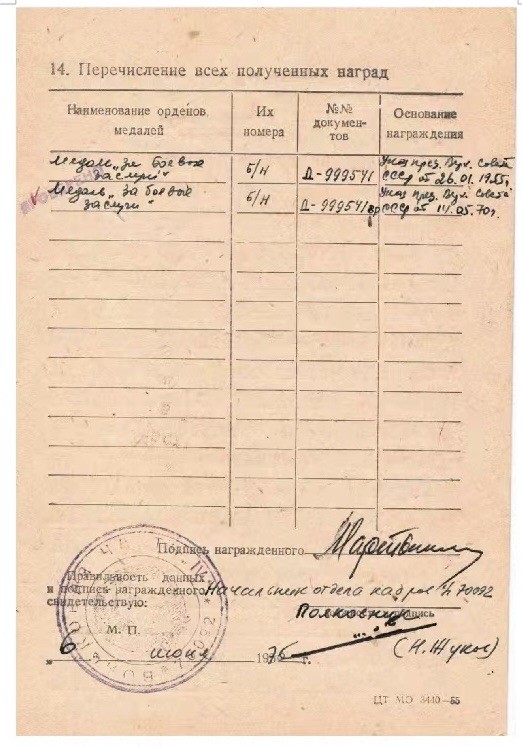 14. Перечисление всех полученных наград
Наименование орденов, медалей
Их номера
№№ документов
Основание награждения
Медаль „за боевые заслуги"
б/н
Д-999541
Указ През. Вух. Совета СССР от 26.01.1955г.
Медаль „за боевые заслуги"
б/н
Д-999541
Указ през. Вух. Совета СССР от 14.05.70г.
Подпись награжденного
Правильность данных
и подпись награжденного Начальник отдела кадров 70092
свидетельствую:
Полковник
подпись
М. П.
(Н. Жуков)
6 июля 1976 г.
ЦТ МО 3440—55